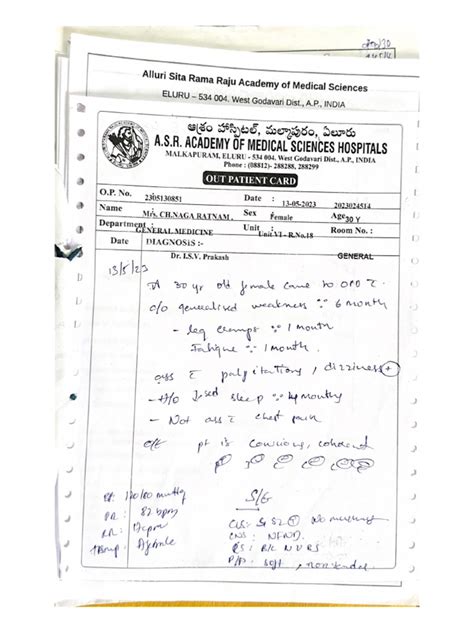 Alluri Sita Rama Raju Academy of Medical Sciences
ELURU – 534 004, West Godavari Dist., A.P., INDIA
ఆశ్రం హాస్పిటల్, మల్కాపురం, ఏలూరు
A.S.R. ACADEMY OF MEDICAL SCIENCES HOSPITALS
MALKAPURAM, ELURU - 534 004. West Godavari Dist., A.P., INDIA
Phone : (08812)- 288288, 288299
OUT PATIENT CARD
O.P. No. 2305130851 Date : 13-05-2023 2023024514
Name : Mrs. CH.NAGA RATNAM , Sex : Female Age 30 Y
Department : GENERAL MEDICINE Unit : Unit VI - R.No.18 Room No. :
Date DIAGNOSIS :- GENERAL
Dr. I.S.V. Prakash
13/5/23
A 30 yr old female came to OPD c̄
c/o generalised weakness ∵ 6 month
- leg cramps ∵ 1 month
Fatigue ∵ 1 month.
ass c̄ palpitations, dizziness +
- H/o sleep ∵ 4 months
- Not ass c̄ chest pain
O/E pt is concious, coherent
BP: 120/80 mmHg S/E
PR: 82 bpm CVS: S1 S2 + No murmurs
RR: 17 cpm CNS: NFND
Temp: Afebrile RS: B/L NVBS
P/A: soft, non tender